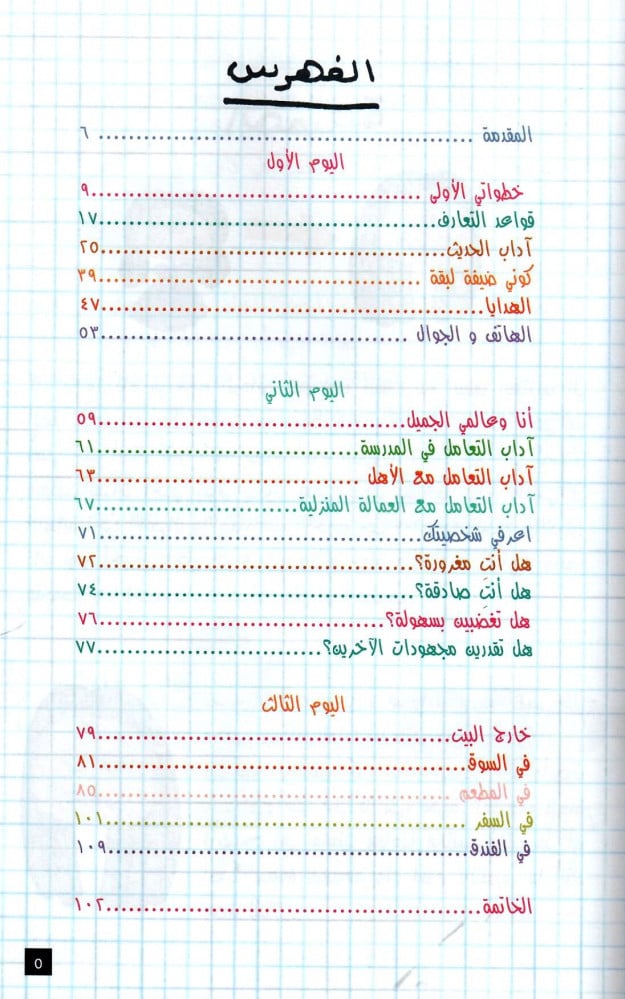 الفهرس
المقدمة .......................................... ٦
اليوم الأول
خطواتي الأولى .....................................٩
قواعد التعارف......................................١٧
آداب الحديث.......................................٢٥
كوني ضيفة لبقة ...................................٣٩
الهدايا............................................٤٧
الهاتف و الجوال ...................................٥٣
اليوم الثاني
أنا وعالمي الجميل..................................٥٩
آداب التعامل في المدرسة............................٦١
آداب التعامل مع الأهل .............................٦٣
آداب التعامل مع العمالة المنزلية......................٦٧
اعرفي شخصيتك....................................٧١
هل أنتِ مغرورة؟...................................٧٢
هل أنتِ صادقة؟...................................٧٤
هل تغضبين بسهولة؟...............................٧٦
هل تقدرين مجهودات الآخرين؟.......................٧٧
اليوم الثالث
خارج البيت.......................................٧٩
في السوق.........................................٨١
في المطعم ........................................٨٥
في السفر ........................................١٠١
في الفندق........................................١٠٩
الخاتمة..........................................١٠٢
٥